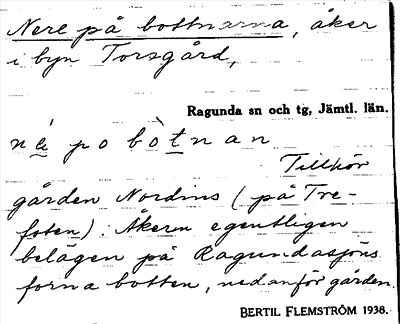 Nere på bottnarna, åker
i byn Torsgård,
Ragunda sn och tg, Jämtl. län.
nè̱ p o b ò t̲ n a n
Tillhör
gården Nordins (på Tre-
foten). Åkern egentligen
belägen på Ragundasjöns
forna botten, nedanför gården.
BERTIL FLEMSTRÖM 1938.